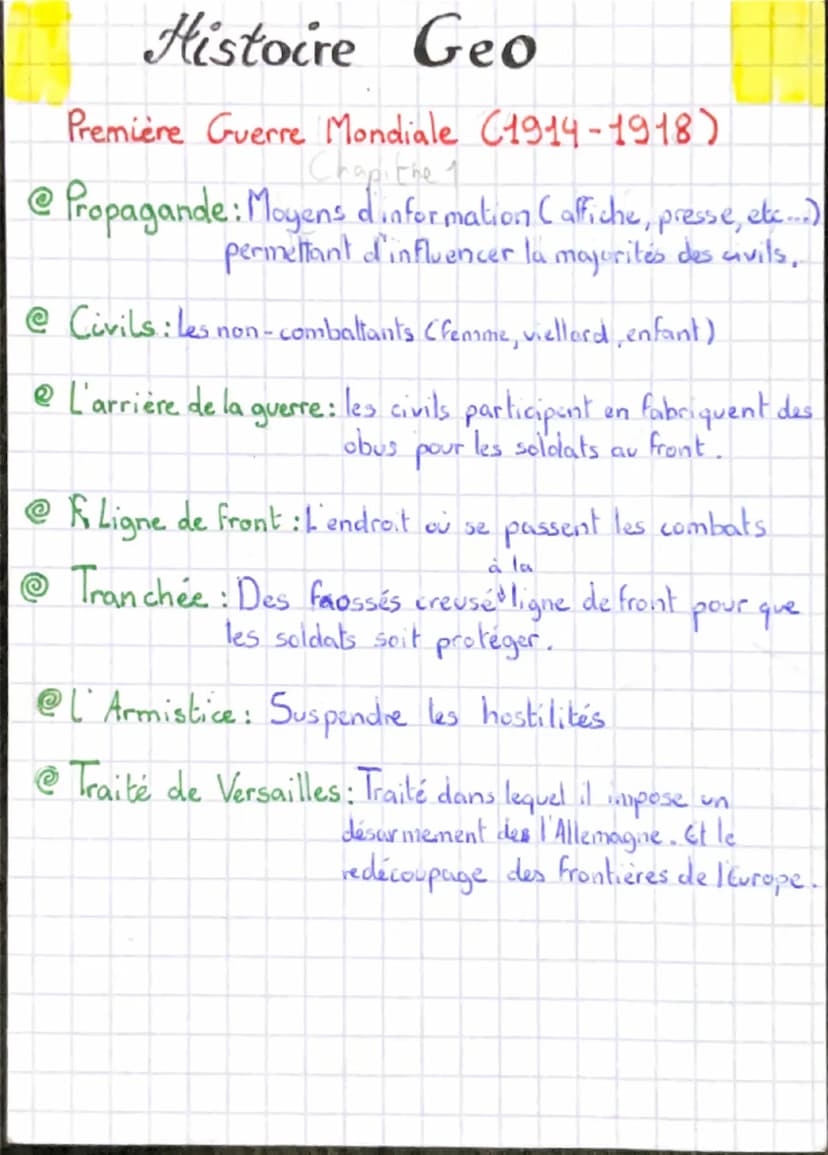 Histoire Geo
Première Guerre Mondiale (1914-1918)
Chapitre 1
@ Propagande : Moyens d'information (affiche, presse, etc...)
permettant d'influencer la majorités des civils.
@ Civils : les non-combattants (femme, viellard, enfant)
@ L'arrière de la guerre : les civils participent en fabriquent des
obus pour les soldats au front.
@ Ligne de front : L'endroit où se passent les combats
à la
@ Tranchée : Des fossés creusé ligne de front pour que
les soldats soit protéger.
@ L'Armistice : Suspendre les hostilités
@ Traité de Versailles : Traité dans lequel il impose un
désarmement des l'Allemagne. Et le
redécoupage des frontières de l'Europe.